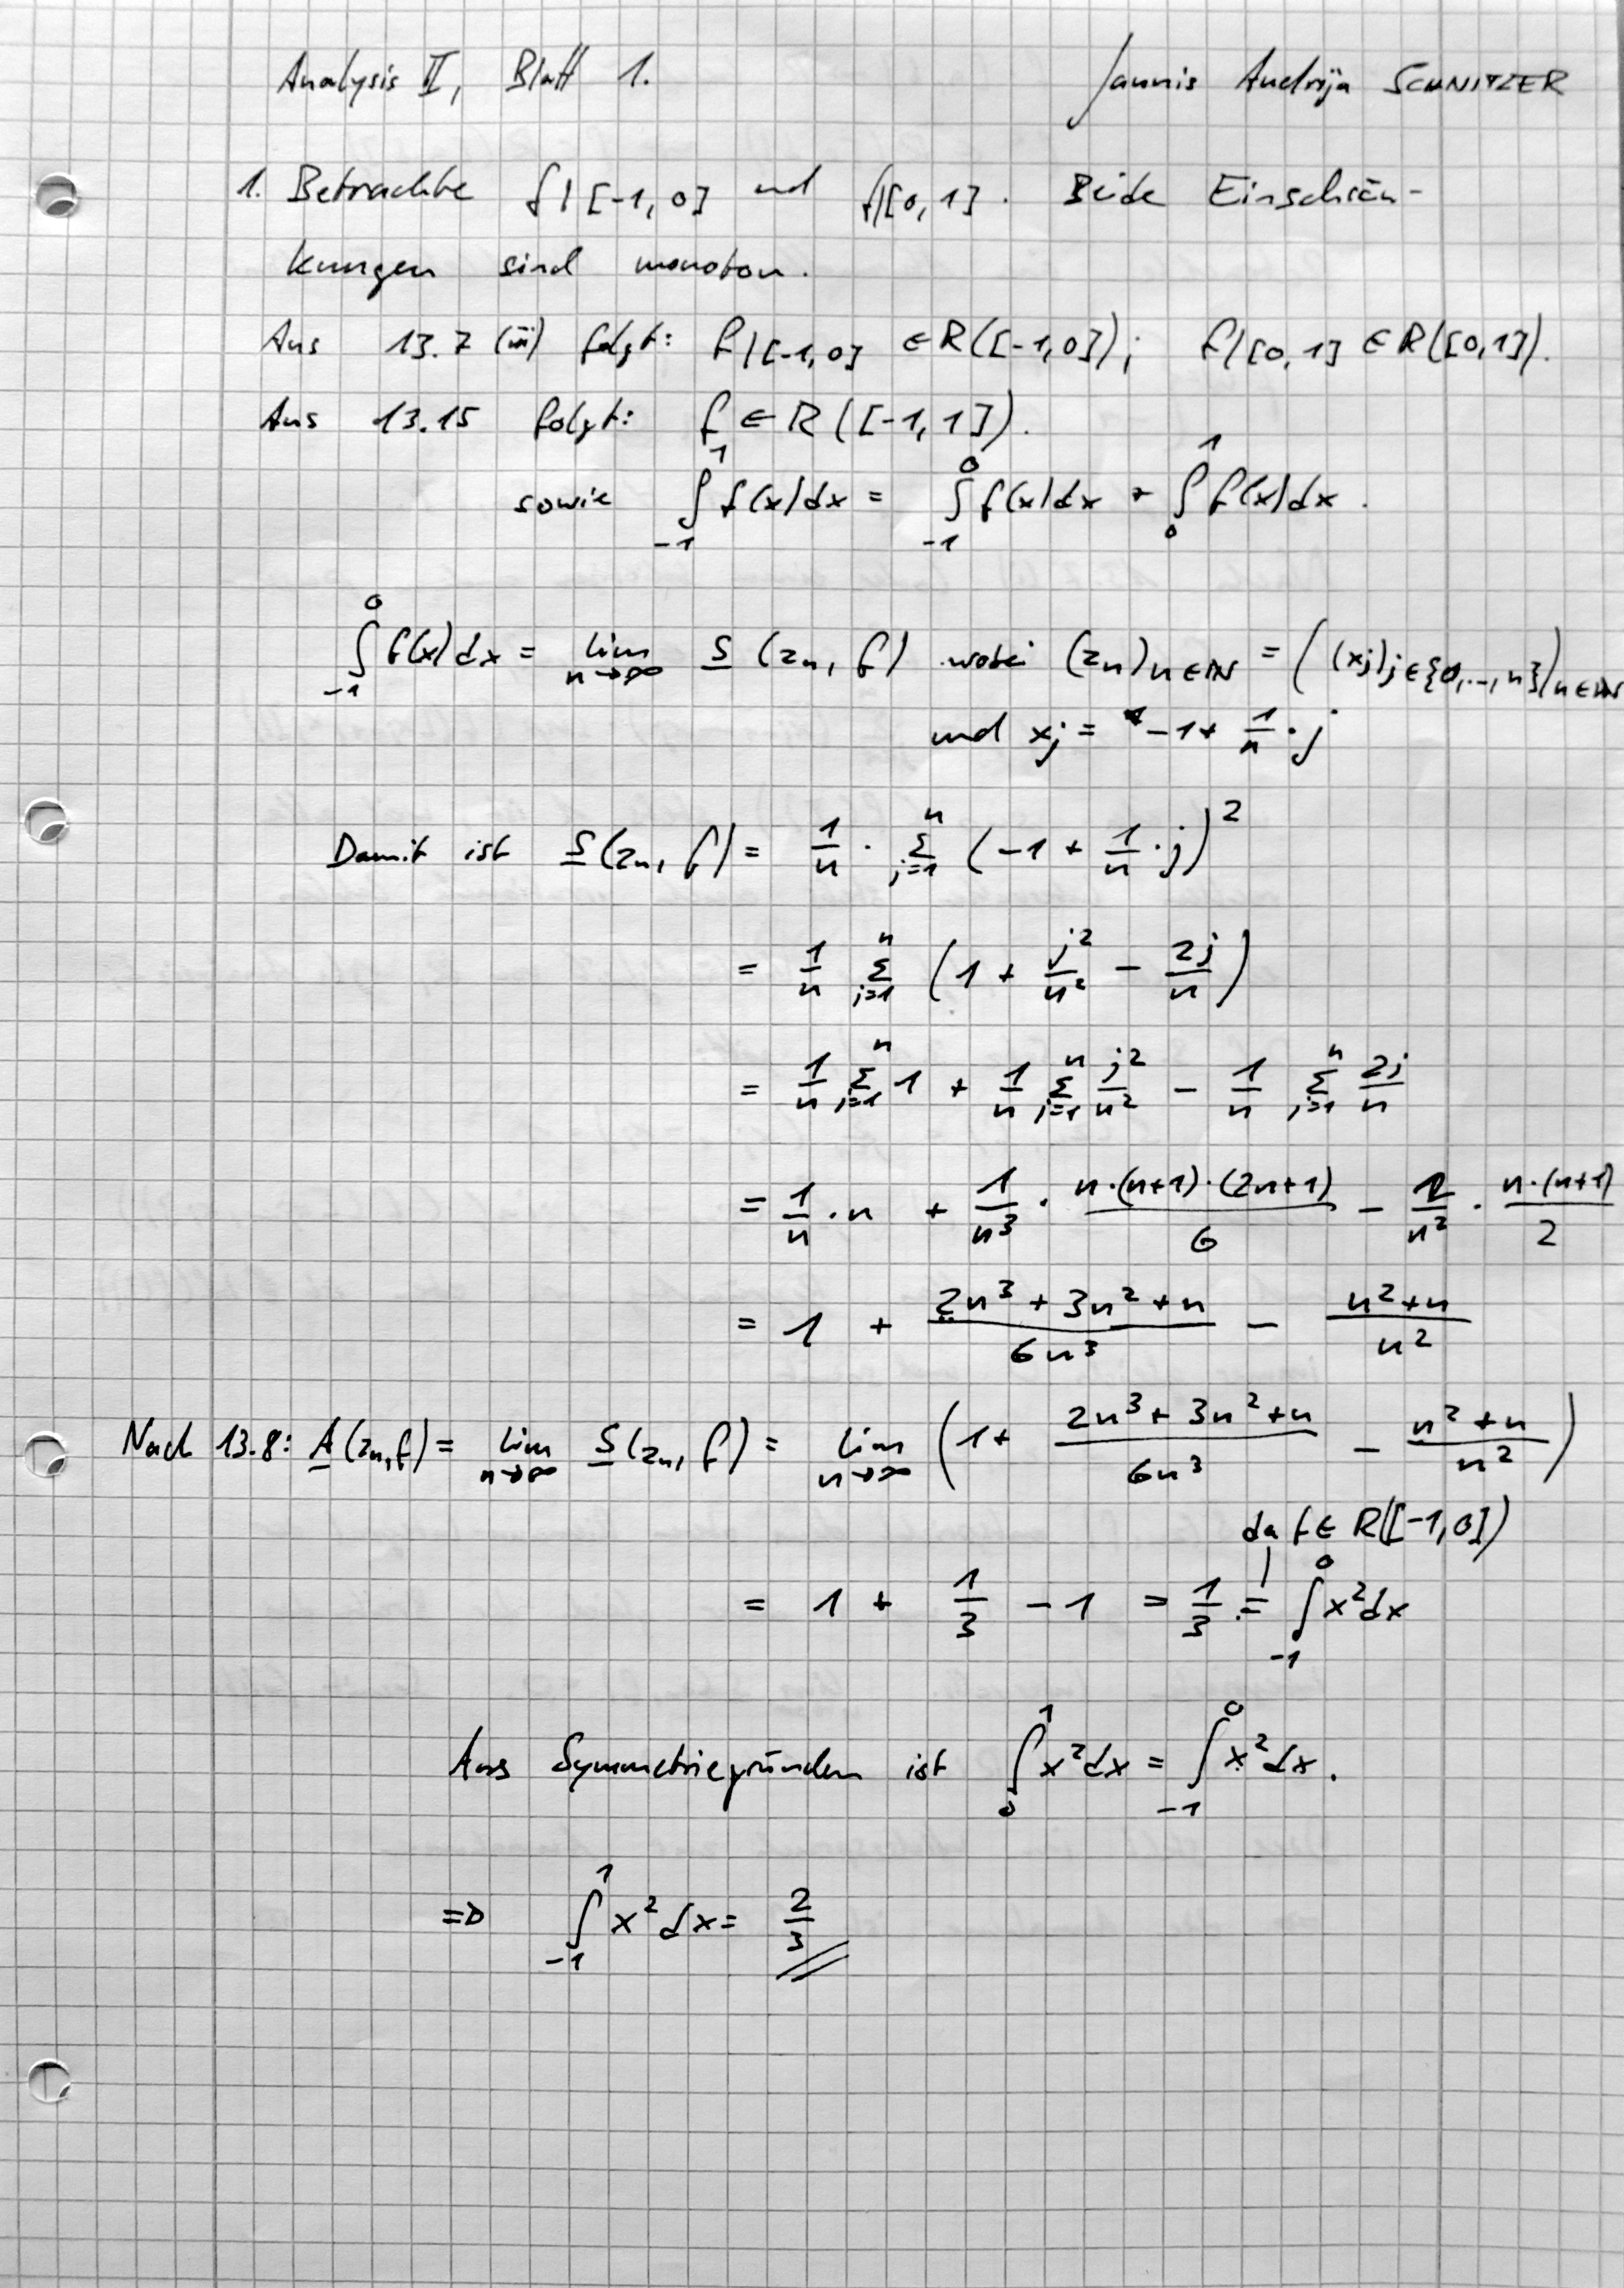 Analysis II, Blatt 1. Jannis Andrija SCHNITZER
1. Betrachte f|[-1,0] und f|[0,1]. Beide Einschrän-
kungen sind monoton.
Aus 13.7 (iii) folgt: f|[-1,0] ∈ R([-1,0]); f|[0,1] ∈ R([0,1]).
Aus 13.15 folgt: f ∈ R([-1,1]).
sowie ∫_{-1}^{1} f(x)dx = ∫_{-1}^{0} f(x)dx + ∫_{0}^{1} f(x)dx.
∫_{-1}^{0} f(x)dx = lim_{n→∞} S̲(z_n, f) wobei (z_n)_{n∈ℕ} = ((x_j)_{j∈{0,...,n}})_{n∈ℕ}
und x_j = -1 + 1/n · j
Damit ist S̲(z_n, f) = 1/n · Σ_{j=1}^{n} (-1 + 1/n · j)²
= 1/n Σ_{j=1}^{n} (1 + j²/n² - 2j/n)
= 1/n Σ_{j=1}^{n} 1 + 1/n Σ_{j=1}^{n} j²/n² - 1/n Σ_{j=1}^{n} 2j/n
= 1/n · n + 1/n³ · n·(n+1)·(2n+1)/6 - 2/n² · n·(n+1)/2
= 1 + (2n³ + 3n² + n)/6n³ - (n² + n)/n²
Nach 13.8: A̲(z_n, f) = lim_{n→∞} S̲(z_n, f) = lim_{n→∞} (1 + (2n³ + 3n² + n)/6n³ - (n² + n)/n²)
da f ∈ R([-1,0])
= 1 + 1/3 - 1 = 1/3 = ∫_{-1}^{0} x²dx
Aus Symmetriegründen ist ∫_{0}^{1} x²dx = ∫_{-1}^{0} x²dx.
⇒ ∫_{-1}^{1} x²dx = 2/3